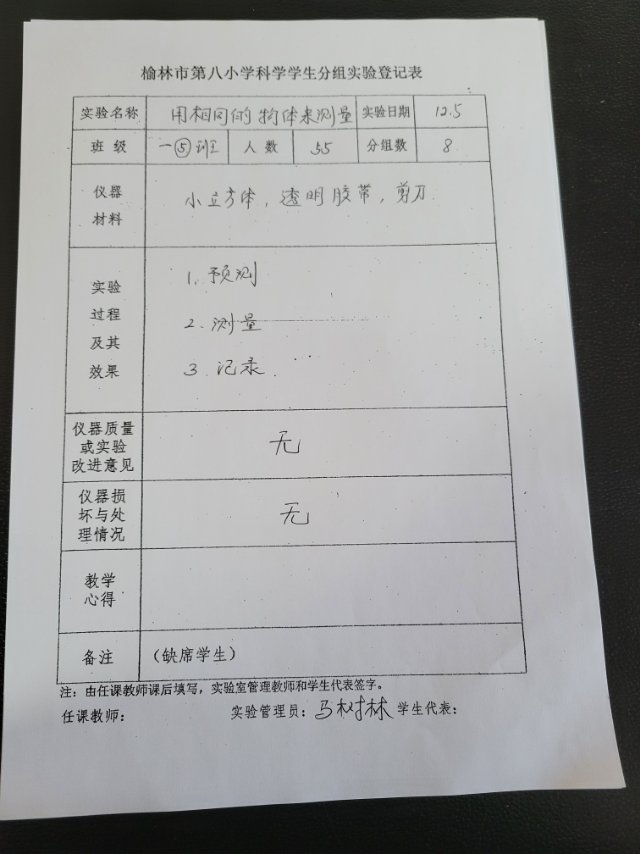 榆林市第八小学科学学生分组实验登记表
实验名称 用相同的物体来测量 实验日期 12.5
班 级 一⑤班 人 数 55 分组数 8
仪器
材料
小立方体，透明胶带，剪刀
实验
过程
及其
效果
1. 预测
2. 测量
3. 记录
仪器质量
或实验
改进意见
无
仪器损
坏与处
理情况
无
教学
心得
备注 （缺席学生）
注：由任课教师课后填写，实验室管理教师和学生代表签字。
任课教师： 实验管理员：马树林 学生代表：